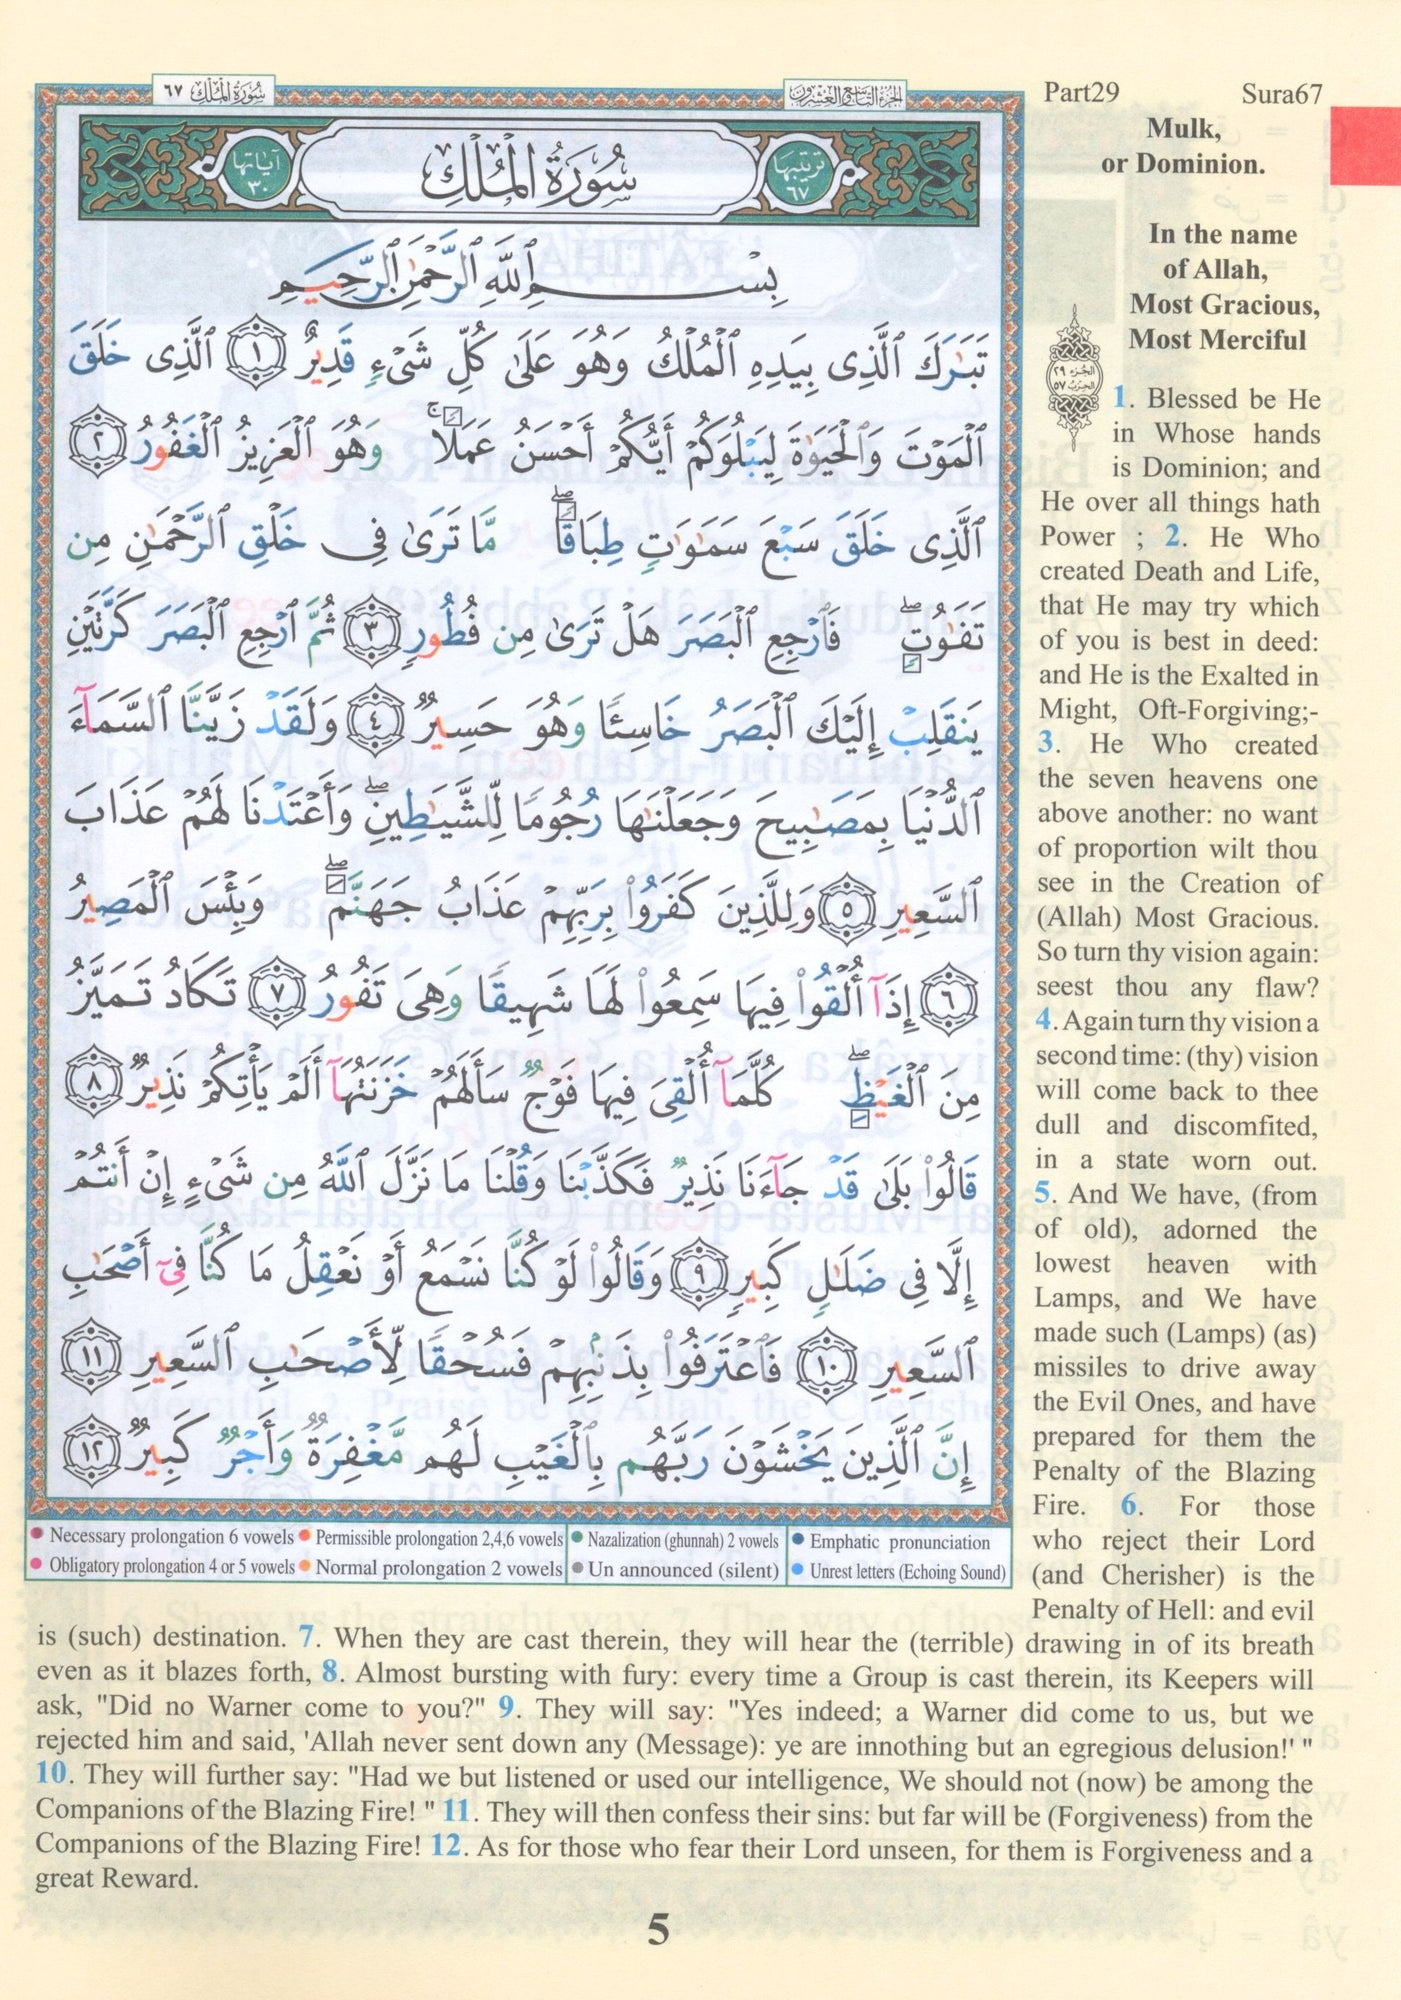 سُورَةُ المُلْكِ ٦٧
الجزء التاسع والعشرون
Part29 Sura67
آياتها ٣٠
سُورَةُ المُلْكِ
ترتيبها ٦٧
بِسْمِ ٱللَّهِ ٱلرَّحْمَٰنِ ٱلرَّحِيمِ
تَبَٰرَكَ ٱلَّذِى بِيَدِهِ ٱلْمُلْكُ وَهُوَ عَلَىٰ كُلِّ شَىْءٍ قَدِيرٌ ١ ٱلَّذِى خَلَقَ
ٱلْمَوْتَ وَٱلْحَيَوٰةَ لِيَبْلُوَكُمْ أَيُّكُمْ أَحْسَنُ عَمَلًا ۚ وَهُوَ ٱلْعَزِيزُ ٱلْغَفُورُ ٢
ٱلَّذِى خَلَقَ سَبْعَ سَمَٰوَٰتٍ طِبَاقًا ۖ مَّا تَرَىٰ فِى خَلْقِ ٱلرَّحْمَٰنِ مِن
تَفَٰوُتٍ ۖ فَٱرْجِعِ ٱلْبَصَرَ هَلْ تَرَىٰ مِن فُطُورٍ ٣ ثُمَّ ٱرْجِعِ ٱلْبَصَرَ كَرَّتَيْنِ
يَنقَلِبْ إِلَيْكَ ٱلْبَصَرُ خَاسِئًا وَهُوَ حَسِيرٌ ٤ وَلَقَدْ زَيَّنَّا ٱلسَّمَآءَ
ٱلدُّنْيَا بِمَصَٰبِيحَ وَجَعَلْنَٰهَا رُجُومًا لِّلشَّيَٰطِينِ ۖ وَأَعْتَدْنَا لَهُمْ عَذَابَ
ٱلسَّعِيرِ ٥ وَلِلَّذِينَ كَفَرُوا۟ بِرَبِّهِمْ عَذَابُ جَهَنَّمَ ۖ وَبِئْسَ ٱلْمَصِيرُ
٦ إِذَآ أُلْقُوا۟ فِيهَا سَمِعُوا۟ لَهَا شَهِيقًا وَهِىَ تَفُورُ ٧ تَكَادُ تَمَيَّزُ
مِنَ ٱلْغَيْظِ ۖ كُلَّمَآ أُلْقِىَ فِيهَا فَوْجٌ سَأَلَهُمْ خَزَنَتُهَآ أَلَمْ يَأْتِكُمْ نَذِيرٌ ٨
قَالُوا۟ بَلَىٰ قَدْ جَآءَنَا نَذِيرٌ فَكَذَّبْنَا وَقُلْنَا مَا نَزَّلَ ٱللَّهُ مِن شَىْءٍ إِنْ أَنتُمْ
إِلَّا فِى ضَلَٰلٍ كَبِيرٍ ٩ وَقَالُوا۟ لَوْ كُنَّا نَسْمَعُ أَوْ نَعْقِلُ مَا كُنَّا فِىٓ أَصْحَٰبِ
ٱلسَّعِيرِ ١٠ فَٱعْتَرَفُوا۟ بِذَنۢبِهِمْ فَسُحْقًا لِّأَصْحَٰبِ ٱلسَّعِيرِ ١١
إِنَّ ٱلَّذِينَ يَخْشَوْنَ رَبَّهُم بِٱلْغَيْبِ لَهُم مَّغْفِرَةٌ وَأَجْرٌ كَبِيرٌ ١٢
Necessary prolongation 6 vowels Permissible prolongation 2,4,6 vowels Nazalization (ghunnah) 2 vowels Emphatic pronunciation
Obligatory prolongation 4 or 5 vowels Normal prolongation 2 vowels Un announced (silent) Unrest letters (Echoing Sound)
Mulk,
or Dominion.
In the name
of Allah,
Most Gracious,
Most Merciful
الجزء ٢٩
الحزب ٥٧
1. Blessed be He
in Whose hands
is Dominion; and
He over all things hath
Power ; 2. He Who
created Death and Life,
that He may try which
of you is best in deed:
and He is the Exalted in
Might, Oft-Forgiving;-
3. He Who created
the seven heavens one
above another: no want
of proportion wilt thou
see in the Creation of
(Allah) Most Gracious.
So turn thy vision again:
seest thou any flaw?
4. Again turn thy vision a
second time: (thy) vision
will come back to thee
dull and discomfited,
in a state worn out.
5. And We have, (from
of old), adorned the
lowest heaven with
Lamps, and We have
made such (Lamps) (as)
missiles to drive away
the Evil Ones, and have
prepared for them the
Penalty of the Blazing
Fire. 6. For those
who reject their Lord
(and Cherisher) is the
Penalty of Hell: and evil
is (such) destination. 7. When they are cast therein, they will hear the (terrible) drawing in of its breath
even as it blazes forth, 8. Almost bursting with fury: every time a Group is cast therein, its Keepers will
ask, "Did no Warner come to you?" 9. They will say: "Yes indeed; a Warner did come to us, but we
rejected him and said, 'Allah never sent down any (Message): ye are innothing but an egregious delusion!' "
10. They will further say: "Had we but listened or used our intelligence, We should not (now) be among the
Companions of the Blazing Fire! " 11. They will then confess their sins: but far will be (Forgiveness) from the
Companions of the Blazing Fire! 12. As for those who fear their Lord unseen, for them is Forgiveness and a
great Reward.
5